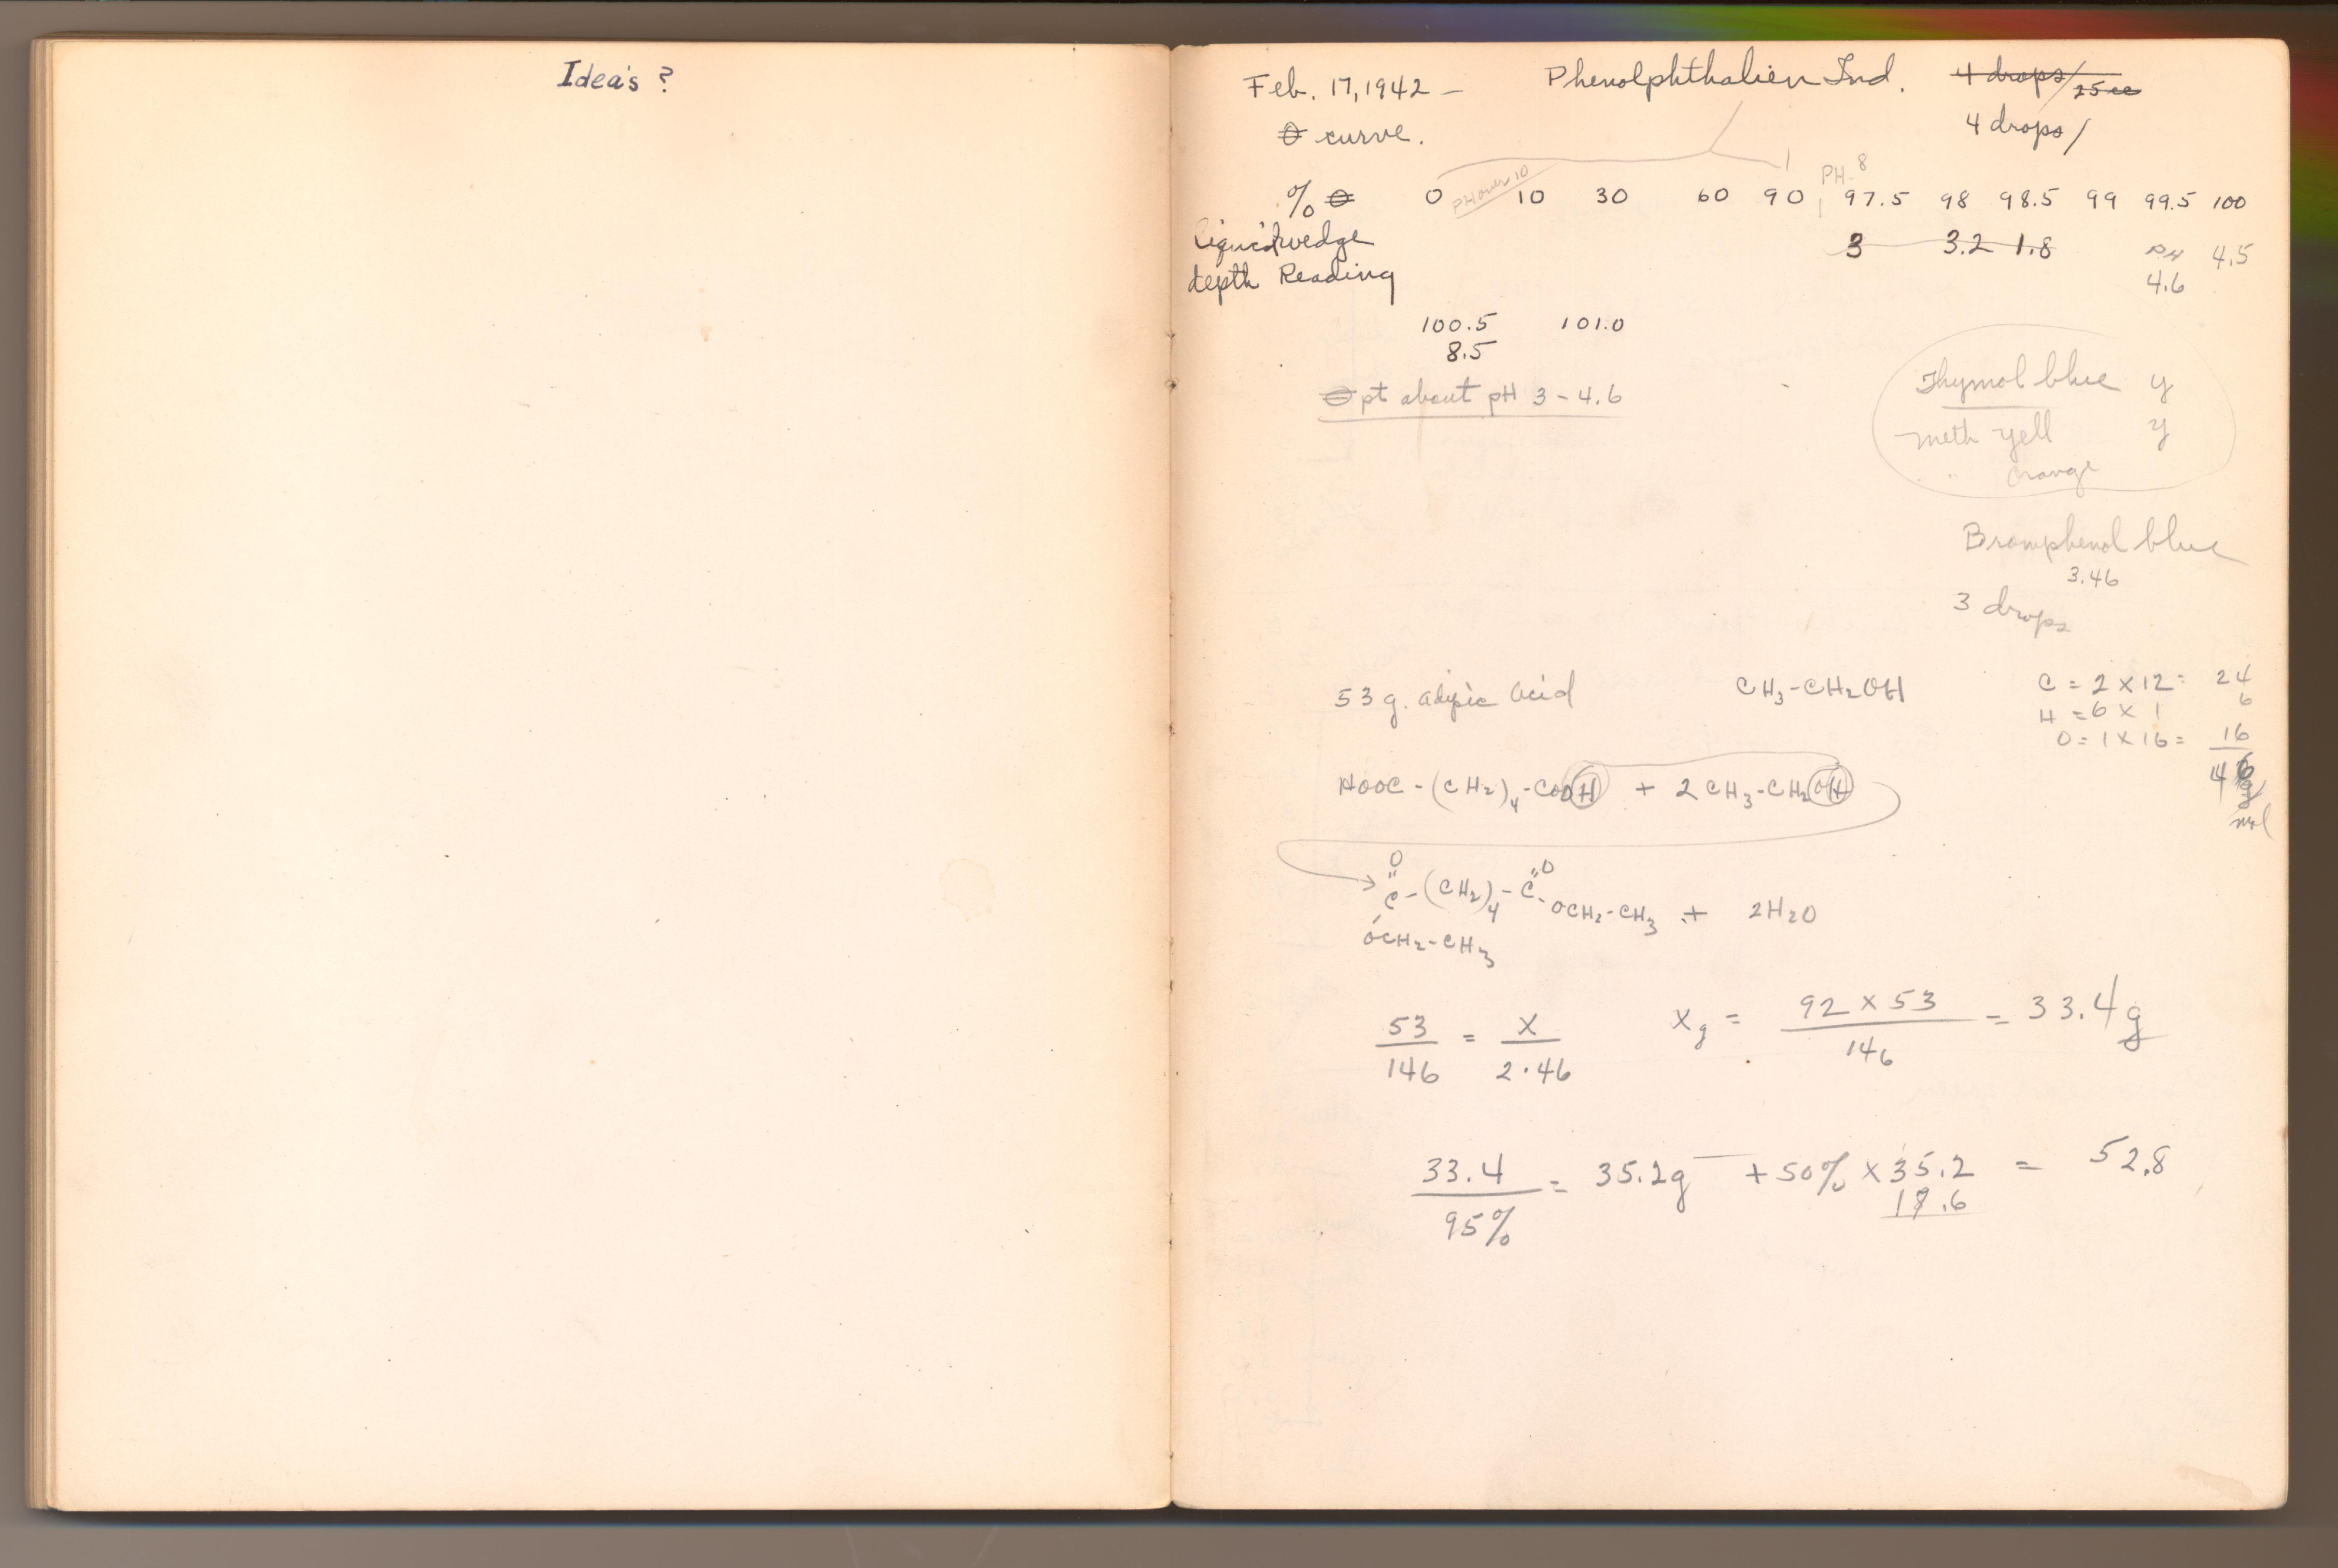 Idea's ?
Feb. 17, 1942 — Phenolphthalien Ind. 4 drops/25cc
⊖ curve. 4 drops/
PH over 10 PH 8
% ⊖ 0 10 30 60 90 97.5 98 98.5 99 99.5 100
Liquid wedge 3 3.2 1.8 PH 4.5
depth Reading 4.6
100.5 101.0
8.5
⊖ pt about pH 3 - 4.6
Thymol blue y
meth yell y
" orange
Bromphenol blue
3.46
3 drops
53 g. adipic acid CH₃-CH₂OH C = 2 x 12 = 24
H = 6 x 1 6
O = 1 x 16 = 16
46 g/mol
HOOC-(CH₂)₄-COOH + 2CH₃-CH₂OH
O O
C-(CH₂)₄-C-OCH₂-CH₃ + 2H₂O
OCH₂-CH₃
53/146 = X/2·46 Xg = 92 x 53/146 = 33.4 g
33.4/95% = 35.2g + 50% x 35.2 = 52.8
17.6